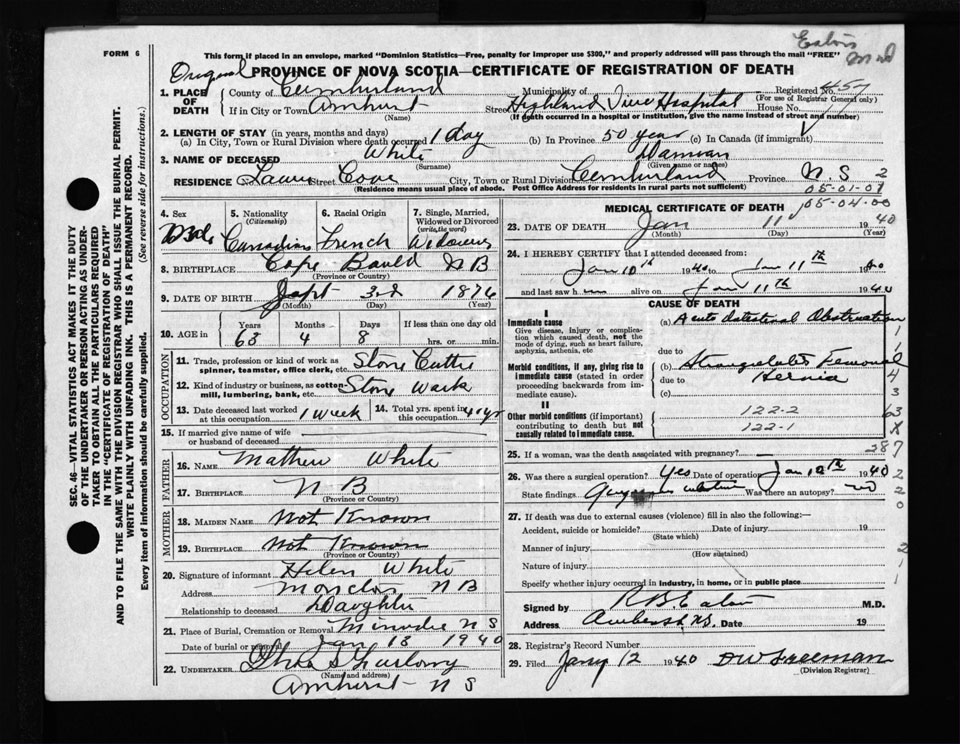 Eaton
M D
FORM 6
This form if placed in an envelope, marked "Dominion Statistics—Free, penalty for improper use $300," and properly addressed will pass through the mail "FREE"
Original PROVINCE OF NOVA SCOTIA—CERTIFICATE OF REGISTRATION OF DEATH
1. PLACE OF DEATH
County of Cumberland
Municipality of
Registered No. 457
(For use of Registrar General only)
If in City or Town Amhurst
(Name)
Street Highland View Hospital House No.
(If death occurred in a hospital or institution, give the name instead of street and number)
2. LENGTH OF STAY (in years, months and days)
(a) In City, Town or Rural Division where death occurred 1 day (b) In Province 50 years (c) In Canada (if immigrant)
3. NAME OF DECEASED White Damian
(Surname) (Given name or names)
RESIDENCE No. Street Cove City, Town or Rural Division Cumberland Province N.S 2
(Residence means usual place of abode. Post Office Address for residents in rural parts not sufficient)
05-01-01
05-04-00
4. Sex
5. Nationality (Citizenship)
6. Racial Origin
7. Single, Married, Widowed or Divorced (write the word)
Male Canadian French Widower
8. BIRTHPLACE Cape Bauld N B
(Province or Country)
9. DATE OF BIRTH Sept 3rd 1876
(Month) (Day) (Year)
10. AGE in
Years Months Days If less than one day old
63 4 8 hrs. or min.
OCCUPATION
11. Trade, profession or kind of work as spinner, teamster, office clerk, etc. Stone Cutter
12. Kind of industry or business, as cotton-mill, lumbering, bank, etc. Stone Work
13. Date deceased last worked at this occupation 1 Week
14. Total yrs. spent in this occupation
15. If married give name of wife or husband of deceased
FATHER
16. NAME Mathew White
17. BIRTHPLACE N B
(Province or Country)
MOTHER
18. MAIDEN NAME Not Known
19. BIRTHPLACE Not Known
(Province or Country)
20. Signature of informant Helen White
Address Moncton N B
Relationship to deceased Daughter
21. Place of Burial, Cremation or Removal Minudie N S
Date of burial or removal Jan 13 1940
22. UNDERTAKER
(Name and address)
Amhurst N S
MEDICAL CERTIFICATE OF DEATH
23. DATE OF DEATH Jan 11 1940
(Month) (Day) (Year)
24. I HEREBY CERTIFY that I attended deceased from:
Jan 10th 1940 to Jan 11th 1940
and last saw him alive on Jan 11th 1940
CAUSE OF DEATH
I
Immediate cause
Give disease, injury or complication which caused death, not the mode of dying, such as heart failure, asphyxia, asthenia, etc
(a) Acute Intestinal Obstruction
due to
Morbid conditions, if any, giving rise to immediate cause (stated in order proceeding backwards from immediate cause).
(b) Strangulated Femoral
due to Hernia
(c)
II
Other morbid conditions (if important) contributing to death but not causally related to immediate cause.
122-2
122-1
1
1
4
3
63
X
25. If a woman, was the death associated with pregnancy? 287
26. Was there a surgical operation? Yes Date of operation Jan 10th 1940
State findings Was there an autopsy? no
2
2
0
27. If death was due to external causes (violence) fill in also the following:—
Accident, suicide or homicide? Date of injury 19
(State which)
Manner of injury
(How sustained)
Nature of injury
Specify whether injury occurred in industry, in home, or in public place
2
1
1
Signed by R B Eaton M.D.
Address Amherst N.S. Date 19
28. Registrar's Record Number
29. Filed Jany 12 1940 D W Freeman
(Division Registrar)
SEC. 46—VITAL STATISTICS ACT MAKES IT THE DUTY
OF THE UNDERTAKER OR PERSON ACTING AS UNDER-
TAKER TO OBTAIN ALL THE PARTICULARS REQUIRED
IN THE "CERTIFICATE OF REGISTRATION OF DEATH"
AND TO FILE THE SAME WITH THE DIVISION REGISTRAR WHO SHALL ISSUE THE BURIAL PERMIT.
WRITE PLAINLY WITH UNFADING INK. THIS IS A PERMANENT RECORD.
Every item of information should be carefully supplied.
(See reverse side for instructions.)